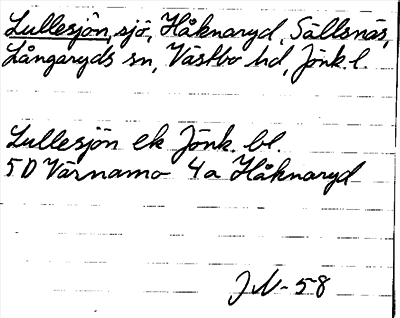 Lullesjön, sjö, Håknaryd, Sällsnäs,
Långaryds sn, Västbo hd, Jönk. l.
Lullesjön ek Jönk. bl.
5D Värnamo 4a Håknaryd
JN-58